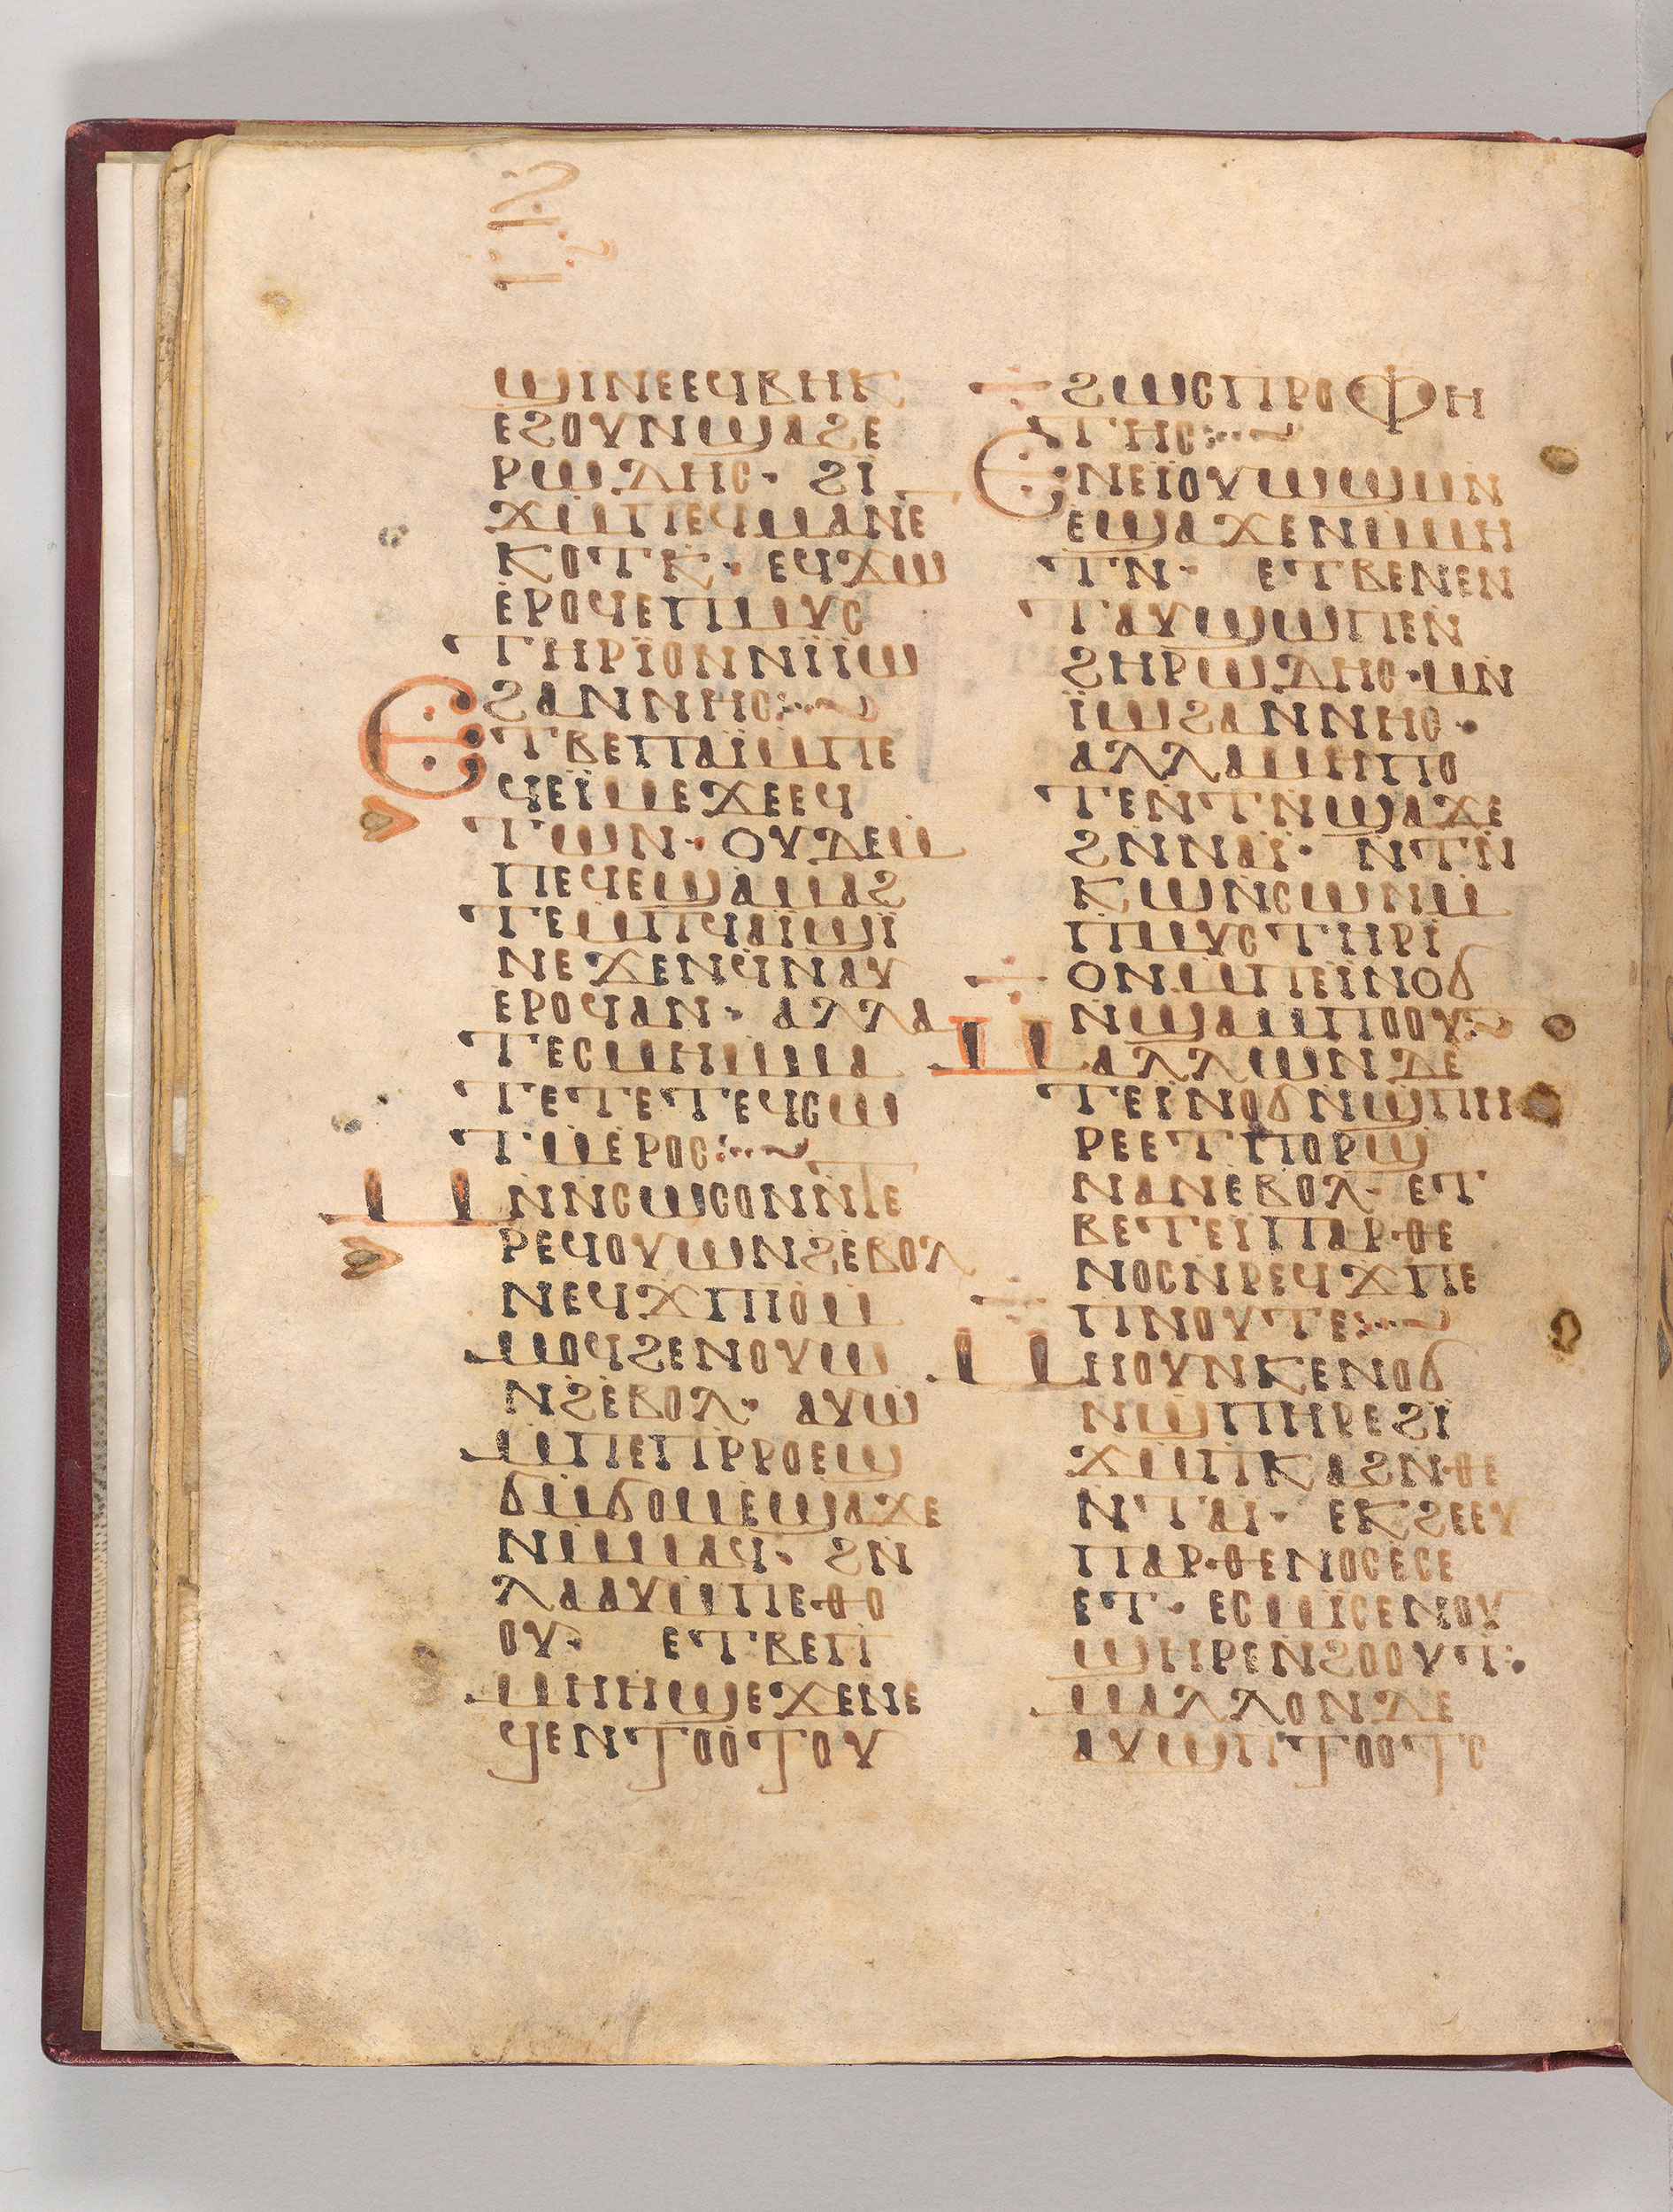 ϣⲓⲛⲉⲉϥⲃⲏⲕ
ⲉϩⲟⲩⲛϣⲁϩⲉ
ⲣⲱⲇⲏⲥ· ϩⲓ
ϫⲙⲡⲉϥⲙⲁⲛⲉ
ⲕⲟⲧⲕ· ⲉϥϫⲱ
ⲉⲣⲟϥⲉⲡⲙⲩⲥ
ⲧⲏⲣⲓⲟⲛⲛⲓⲱ
ϩⲁⲛⲛⲏⲥ:··~
Ⲉⲧⲃⲉⲡⲁⲓⲙⲡⲉ
ϥⲉⲓⲙⲉϫⲉⲉϥ
ⲧⲱⲛ· ⲟⲩⲇⲉⲙ
ⲡⲉϥⲉϣⲁⲙⲁϩ
ⲧⲉⲙⲡϥⲁⲓϣⲓ
ⲛⲉϫⲉⲛϥⲛⲁⲩ
ⲉⲣⲟϥⲁⲛ· ⲁⲗⲗⲁ
ⲧⲉⲥⲙⲏⲙⲙⲁ
ⲧⲉⲧⲉⲧⲉϥⲥⲱ
ⲧⲙⲉⲣⲟⲥ:··~
Ⲙⲛⲛⲥⲱⲥⲟⲛⲛⲧⲉ
ⲣⲉϥⲟⲩⲱⲛϩⲉⲃⲟⲗ
ⲛⲉϥϫⲡⲓⲟⲙ
ⲙⲟϥϩⲉⲛⲟⲩⲱ
ⲛϩⲉⲃⲟⲗ· ⲁⲩⲱ
ⲙⲡⲉⲡⲣⲣⲟⲉϣ
ϭⲙϭⲟⲙⲉϣⲁϫⲉ
ⲛⲙⲙⲁϥ· ϩⲛ
ⲗⲁⲁⲩⲙⲡⲉⲑⲟ
ⲟⲩ· ⲉⲧⲃⲉⲡ
ⲙⲏⲏϣⲉϫⲉⲛⲉ
ϥⲉⲛⲧⲟⲟⲧⲟⲩ
ϩⲱⲥⲡⲣⲟⲫⲏ
ⲧⲏⲥ:··~
Ⲉⲛⲉⲓⲟⲩⲱϣⲙⲛ
ⲉϣⲁϫⲉⲛⲙⲙⲏ
ⲧⲛ· ⲉⲧⲃⲉⲛⲉⲛ
ⲧⲁⲩϣⲱⲡⲉⲛ
ϩⲏⲣⲱⲇⲏⲥ·ⲙⲛ
ⲓⲱϩⲁⲛⲛⲏⲥ·
ⲁⲗⲗⲁⲙⲏⲡⲟ
ⲧⲉⲛⲧⲛϣⲁϫⲉ
ϩⲛⲛⲁⲓ· ⲛⲧⲛ
ⲕⲱⲛⲥⲱⲛⲙ
ⲡⲙⲩⲥⲧⲏⲣⲓ
ⲟⲛⲙⲡⲉⲓⲛⲟϭ
ⲛϣⲁⲙⲡⲟⲟⲩ:~
Ⲙⲁⲗⲗⲱⲛⲇⲉ
ⲧⲉⲓⲛⲟϭⲛϣⲡⲏ
ⲣⲉⲉⲧⲡⲟⲣϣ
ⲛⲁⲛⲉⲃⲟⲗ· ⲉⲧ
ⲃⲉⲧⲉⲓⲡⲁⲣⲑⲉ
ⲛⲟⲥⲛⲣⲉϥϫⲡⲉ
ⲡⲛⲟⲩⲧⲉ:··~
Ⲙⲏⲟⲩⲛⲕⲉⲛⲟϭ
ⲛϣⲡⲏⲣⲉϩⲓ
ϫⲙⲡⲕⲁϩⲛⲑⲉ
ⲛⲧⲁⲓ· ⲉⲕϩⲉⲉⲩ
ⲡⲁⲣⲑⲉⲛⲟⲥⲉⲥⲉ
ⲉⲧ· ⲉⲥⲙⲓⲥⲉⲛⲟⲩ
ϣⲏⲣⲉⲛϩⲟⲟⲩⲧ:·
ⲙⲁⲗⲗⲟⲛⲇⲉ
ⲁⲩϣⲡⲧⲟⲟⲧⲥ